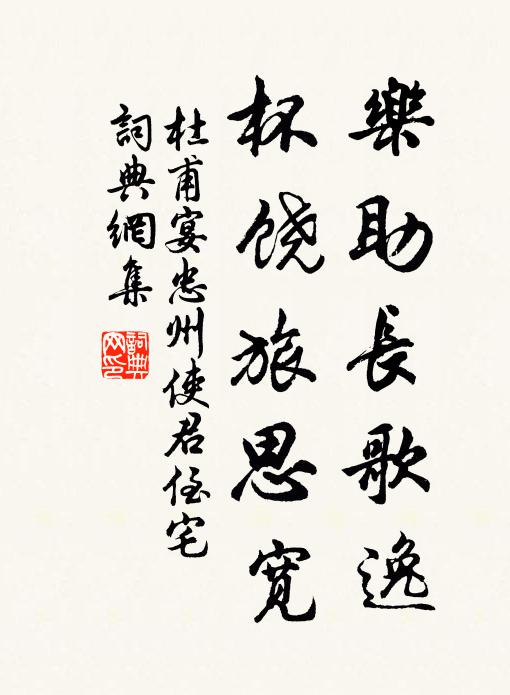 樂助長歌逸
杯饒旅思寬
杜甫宴忠州使君侄宅
詞典網集
詞典網印